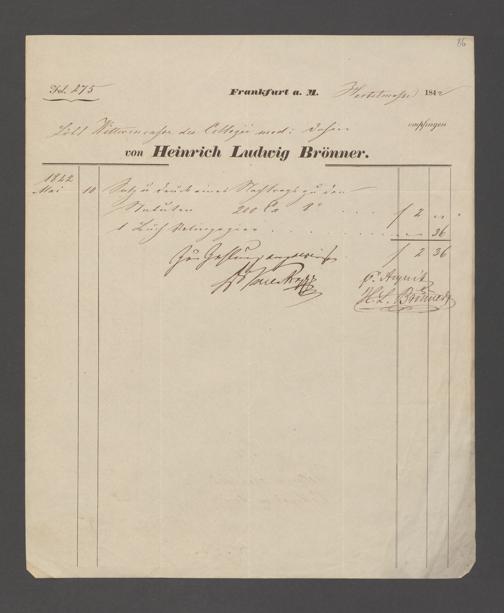 86
Fol. 275
Frankfurt a. M. Herbstmesse 1842
Löbl. Wittwencasse des Collegii med: dahier
empfingen
von Heinrich Ludwig Brönner.
1842
Mai 10 Satz u druck eines Nachtrags zu den
Statuten 200 Ex 4° f 2 „
1 Buch Velinpapier 36
Zur Zahlung angewiesen f 2 36
H. L. Brönner